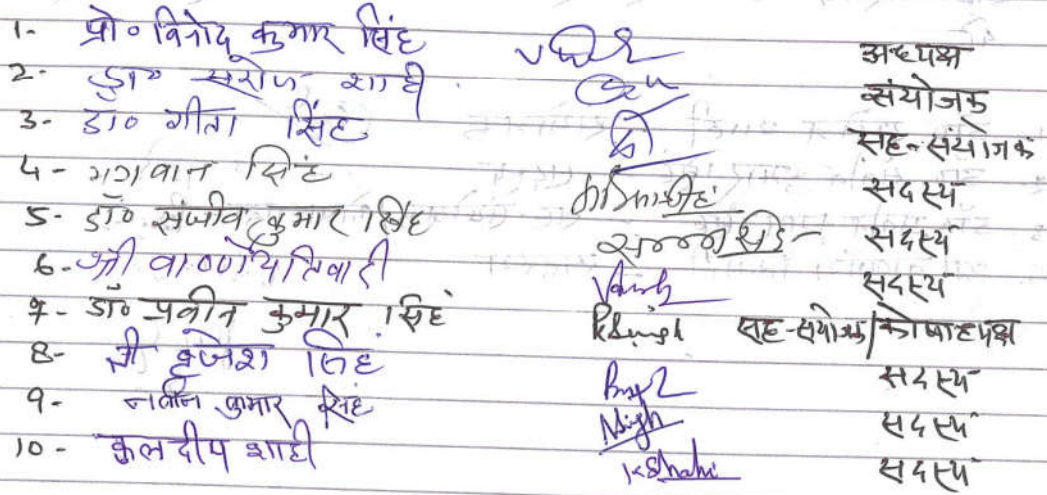 1- प्रो० विनोद कुमार सिंह अध्यक्ष
2- डा० सरोज शाही संयोजक
3- डा० गीता सिंह सह-संयोजक
4- भगवान सिंह सदस्य
5- डॉ० संजीव कुमार सिंह सदस्य
6- श्री वाण्णेय तिवारी Vansh सदस्य
7- डॉ० प्रवीन कुमार सिंह PKSingh सह-संयोजक/कोषाध्यक्ष
8- श्री बृजेश सिंह सदस्य
9- नवीन कुमार सिंह NSingh सदस्य
10- कुलदीप शाही KShahi सदस्य